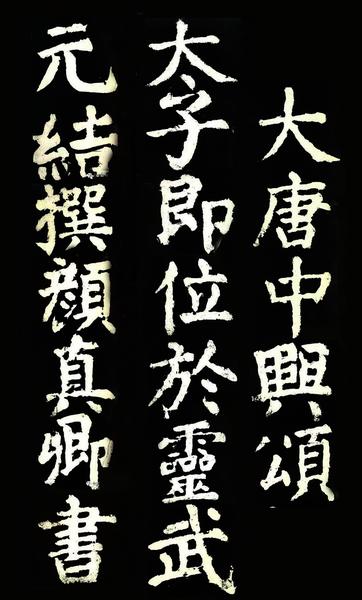 大唐中興頌
太子即位於靈武
元結撰顏真卿書